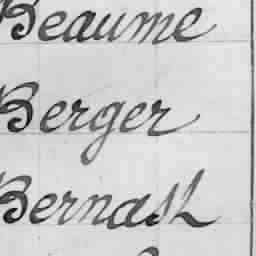 Beaume
Berger
Bernash